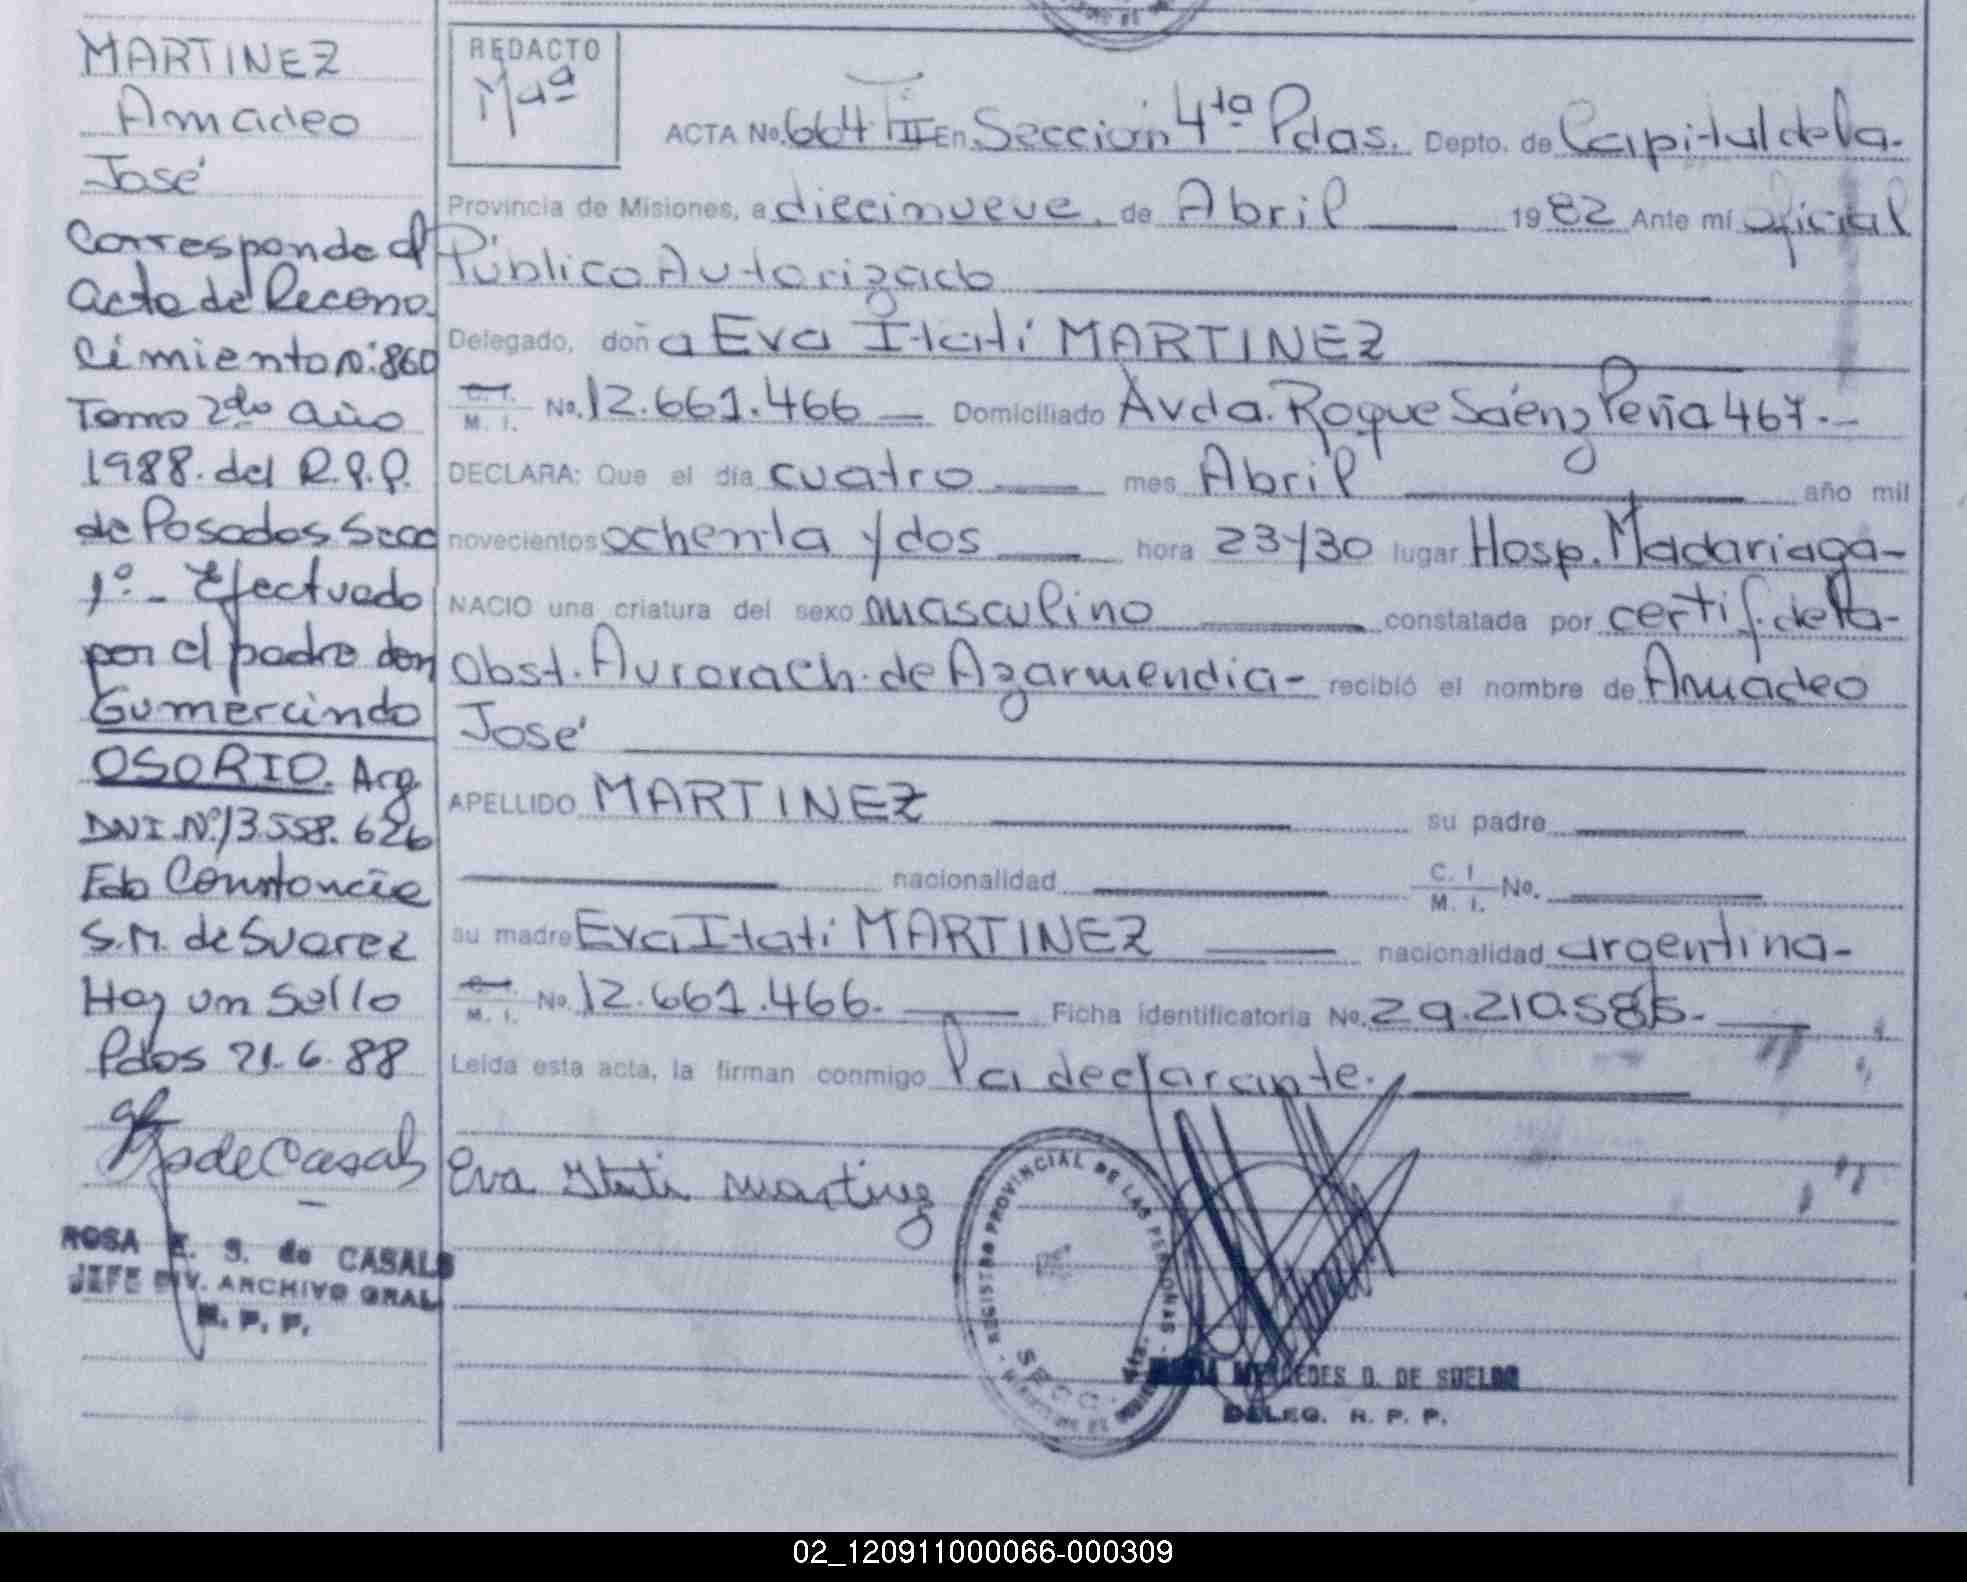 MARTINEZ
Amadeo
José
Corresponde al
acta de Recono
cimiento Nº: 860
Tomo 2do año
1988. del R.P.P.
de Posadas Secc
1º - Efectuado
por el padre don
Gumercindo
OSORIO. Arg
DNI. Nº 13.558.626
Edo Constancia
S.M. de Suarez
Hay un Sello
Pdas 21.6.88
de Casals
ROSA E. S. de CASALS
JEFE DIV. ARCHIVO GRAL
R. P. P.
REDACTO
Mªª
ACTA No. 664 TII En Sección 4ta Pdas. Depto. de Capital de la-
Provincia de Misiones, a diecinueve de Abril 1982 Ante mí Oficial
Público Autorizado
Delegado, doña Eva Itatí MARTINEZ
C. I. M. I. No. 12.661.466 Domiciliado Avda. Roque Sáenz Peña 467.-
DECLARA: Que el día cuatro mes Abril año mil
novecientos ochenta y dos hora 23y30 lugar Hosp. Madariaga-
NACIO una criatura del sexo masculino constatada por certif. de la-
Obst. Aurora Ch. de Azarmendia- recibió el nombre de Amadeo
José
APELLIDO MARTINEZ su padre
nacionalidad C. I M. I. No.
su madre Eva Itati MARTINEZ nacionalidad argentina-
C. I. M. I. No. 12.661.466. Ficha identificatoria No. 29.210.585.
Leída esta acta, la firman conmigo la declarante.
Eva Itati Martinez
REGISTRO PROVINCIAL DE LAS PERSONAS
SECC. 4ta.
MERCEDES D. DE SUELDO
DELEG. R. P. P.
02_120911000066-000309